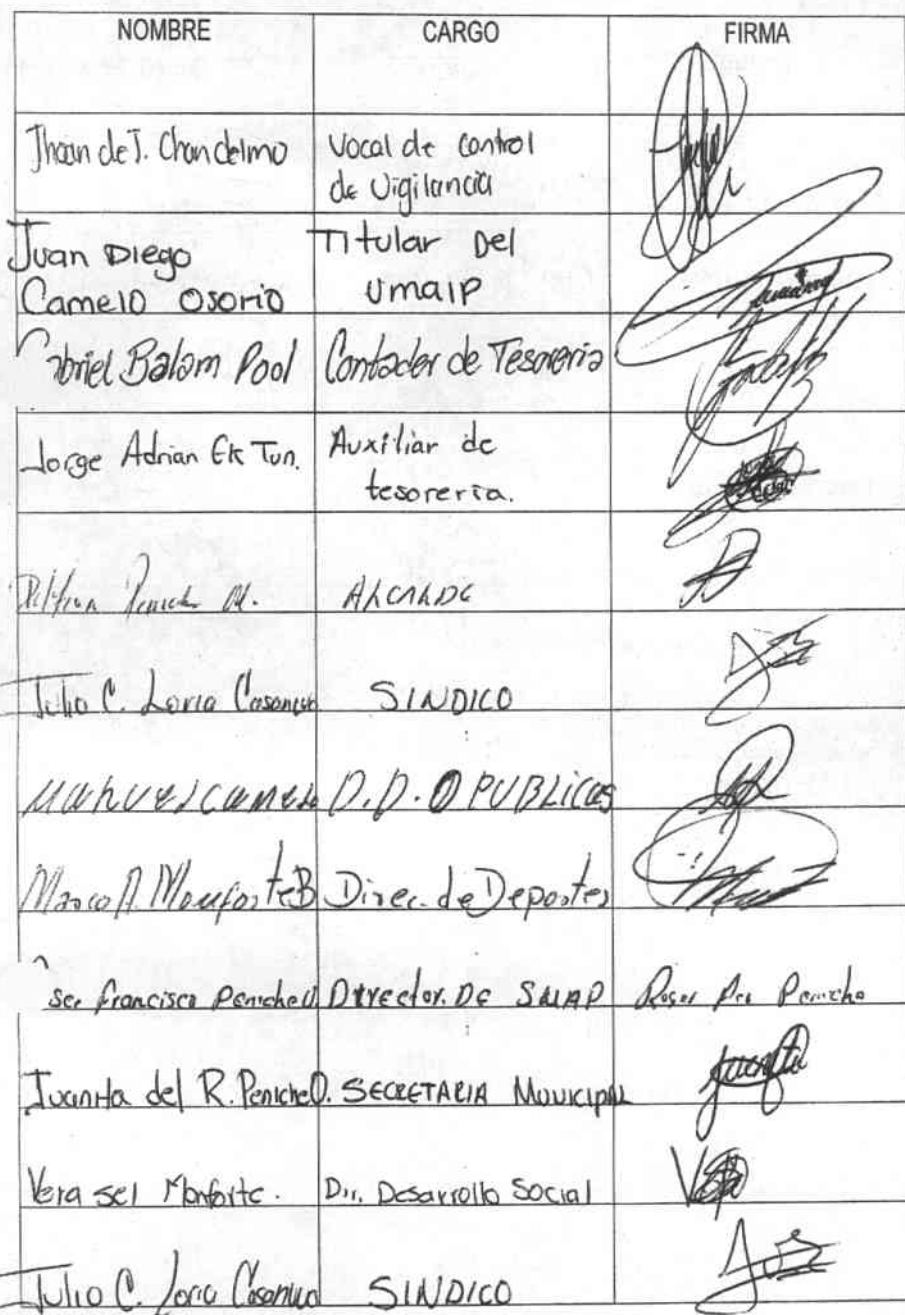 NOMBRE CARGO FIRMA
Jhoan de J. Chan delmo Vocal de control
de vigilancia
Juan Diego Titular Del
Camelo Osorio UMAIP
briel Balam Pool Contador de Tesoreria
Jorge Adrian Ek Tun. Auxiliar de
tesoreria.
ALCALDE
Julio C. Loria Casanova SINDICO
Manuel Camelo D.D. O PUBLICAS
Marco A. Monforte B Direc. de Deportes
ser Francisco Peniche O Director. De SMAP Roger Peniche
Juanita del R. Peniche O. SECRETARIA MUNICIPAL Juanita
Vera sel Monforte. Dir. Desarrollo Social
Julio C. Loria Casanova SINDICO